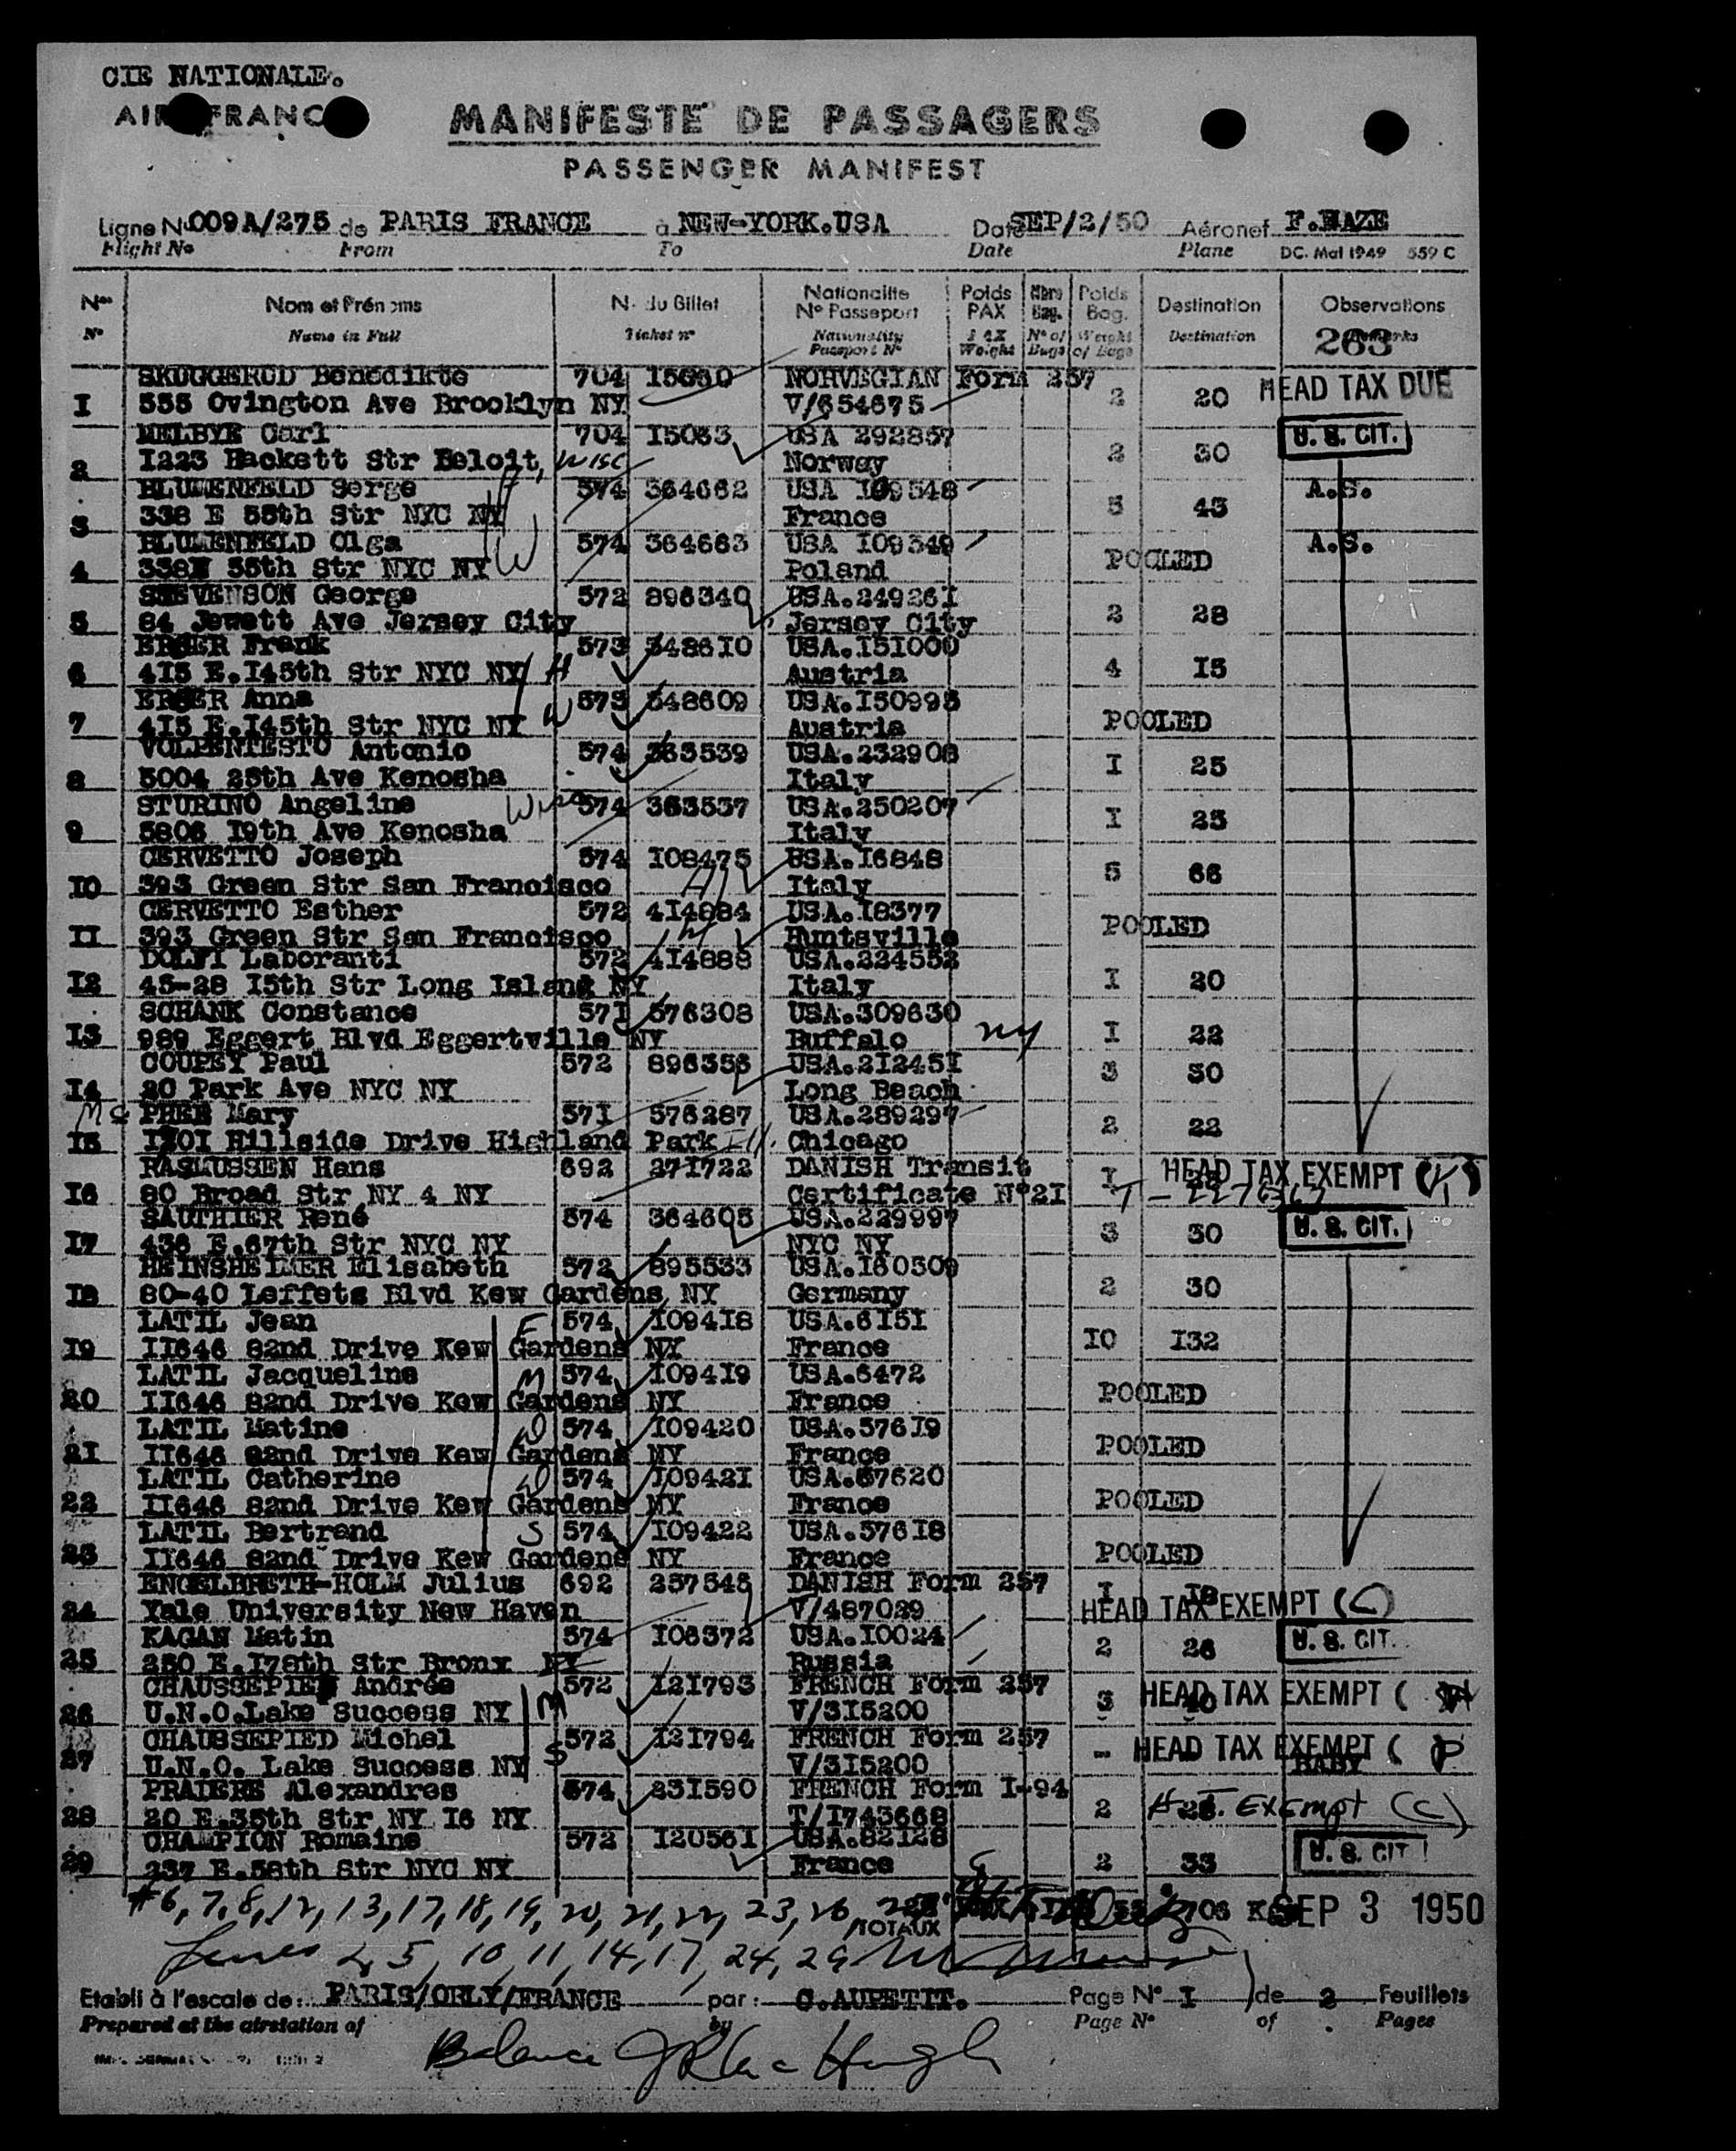 CIE NATIONALE.
AIR FRANCE
MANIFESTE DE PASSAGERS
PASSENGER MANIFEST
Ligne N 009A/275 de PARIS FRANCE à NEW-YORK.USA Date SEP/2/50 Aéronef F.BAZE
Flight No From To Date Plane DC. Mai 1949 559 C
Nos Nom et Prénoms N. du Billet Nationalite Poids Nbre Poids Destination Observations
N° Passeport PAX Bag. Bag.
N° Name in Full Ticket n° Nationality PAX N° of Weight Destination 263
Passport N° Weight Bags of Bags
SKUGGERUD Benedikte 704 15630 NORVEGIAN Form 257 HEAD TAX DUE
1 555 Ovington Ave Brooklyn NY V/654675 2 20
MELBYE Carl 704 15033 USA 292857 U. S. CIT.
2 1223 Hackett Str Beloit, Wisc Norway 2 30
BLUMENFELD Serge 574 364662 USA 109548 A.S.
3 338 E 55th Str NYC NY H France 5 43
BLUMENFELD Olga 574 364663 USA 109549 A.S.
4 338E 55th Str NYC NY W Poland POOLED
STEVENSON George 572 896340 USA.249261
5 84 Jewett Ave Jersey City Jersey City 2 28
ERGER Frank 573 548610 USA.151000
6 415 E.145th Str NYC NY H Austria 4 15
ERGER Anna 573 548609 USA.150995
7 415 E.145th Str NYC NY W Austria POOLED
VOLPENTESTO Antonio 574 363539 USA.232906
8 5004 25th Ave Kenosha Italy 1 25
STURINO Angeline Wisc 574 363537 USA.250207
9 5806 19th Ave Kenosha Italy 1 25
CERVETTO Joseph 574 108475 USA.16848
10 393 Green Str San Francisco H Italy 5 66
CERVETTO Esther 572 414884 USA.18377
11 393 Green Str San Francisco W Huntsville POOLED
DOLFI Laboranti 572 414888 USA.224552
12 45-28 15th Str Long Island NY Italy 1 20
SCHANK Constance 571 576308 USA.309630
13 989 Eggert Blvd Eggertville NY Buffalo NY 1 22
COUPEY Paul 572 896356 USA.212451
14 20 Park Ave NYC NY Long Beach 3 30
Mc PHEE Mary 571 576287 USA.289297
15 1301 Hillside Drive Highland Park Ill. Chicago 2 22
RASMUSSEN Hans 692 271722 DANISH Transit HEAD TAX EXEMPT
16 80 Broad Str NY 4 NY Certificate N°21 1
SAUTHIER René 574 364605 USA.229997 U. S. CIT.
17 436 E.67th Str NYC NY NYC NY 3 30
HEINSHEIMER Elisabeth 572 895533 USA.160309
18 80-40 Leffets Blvd Kew Gardens NY Germany 2 30
LATIL Jean F 574 109418 USA.6151
19 11646 82nd Drive Kew Gardens NY France 10 132
LATIL Jacqueline M 574 109419 USA.6472
20 11646 82nd Drive Kew Gardens NY France POOLED
LATIL Matine D 574 109420 USA.57619
21 11646 82nd Drive Kew Gardens NY France POOLED
LATIL Catherine D 574 109421 USA.57620
22 11646 82nd Drive Kew Gardens NY France POOLED
LATIL Bertrand S 574 109422 USA.57618
23 11646 82nd Drive Kew Gardens NY France POOLED
ENGELBRETH-HOLM Julius 692 257545 DANISH Form 257 1 18
24 Yale University New Haven V/487029 HEAD TAX EXEMPT (C)
KAGAN Matin 574 106372 USA.10024 U. S. CIT.
25 250 E.178th Str Bronx NY Russia 2 26
CHAUSSEPIED Andrée 572 121793 FRENCH Form 257 HEAD TAX EXEMPT (
26 U.N.O.Lake Success NY M V/315200 3 40
CHAUSSEPIED Michel 572 121794 FRENCH Form 257 - HEAD TAX EXEMPT (
27 U.N.O. Lake Success NY S V/315200 BABY
PRAIERE Alexandres 574 231590 FRENCH Form I-94
28 20 E.35th Str NY 16 NY T/1743668 2 Exempt (C)
CHAMPION Romaine 572 120561 USA.82128 U. S. CIT
29 237 E.58th Str NYC NY France 2 33
#6, 7, 8, 12, 13, 17, 18, 19, 20, 21, 22, 23, 26, TOTAUX SEP 3 1950
Lines 2, 5, 10, 11, 14, 17, 24, 29
Etabli à l'escale de: PARIS/ORLY/FRANCE par: C.AUPETIT. Page N° 1 de 2 Feuillets
Prepared at the airstation of by Page N° of Pages
Balance